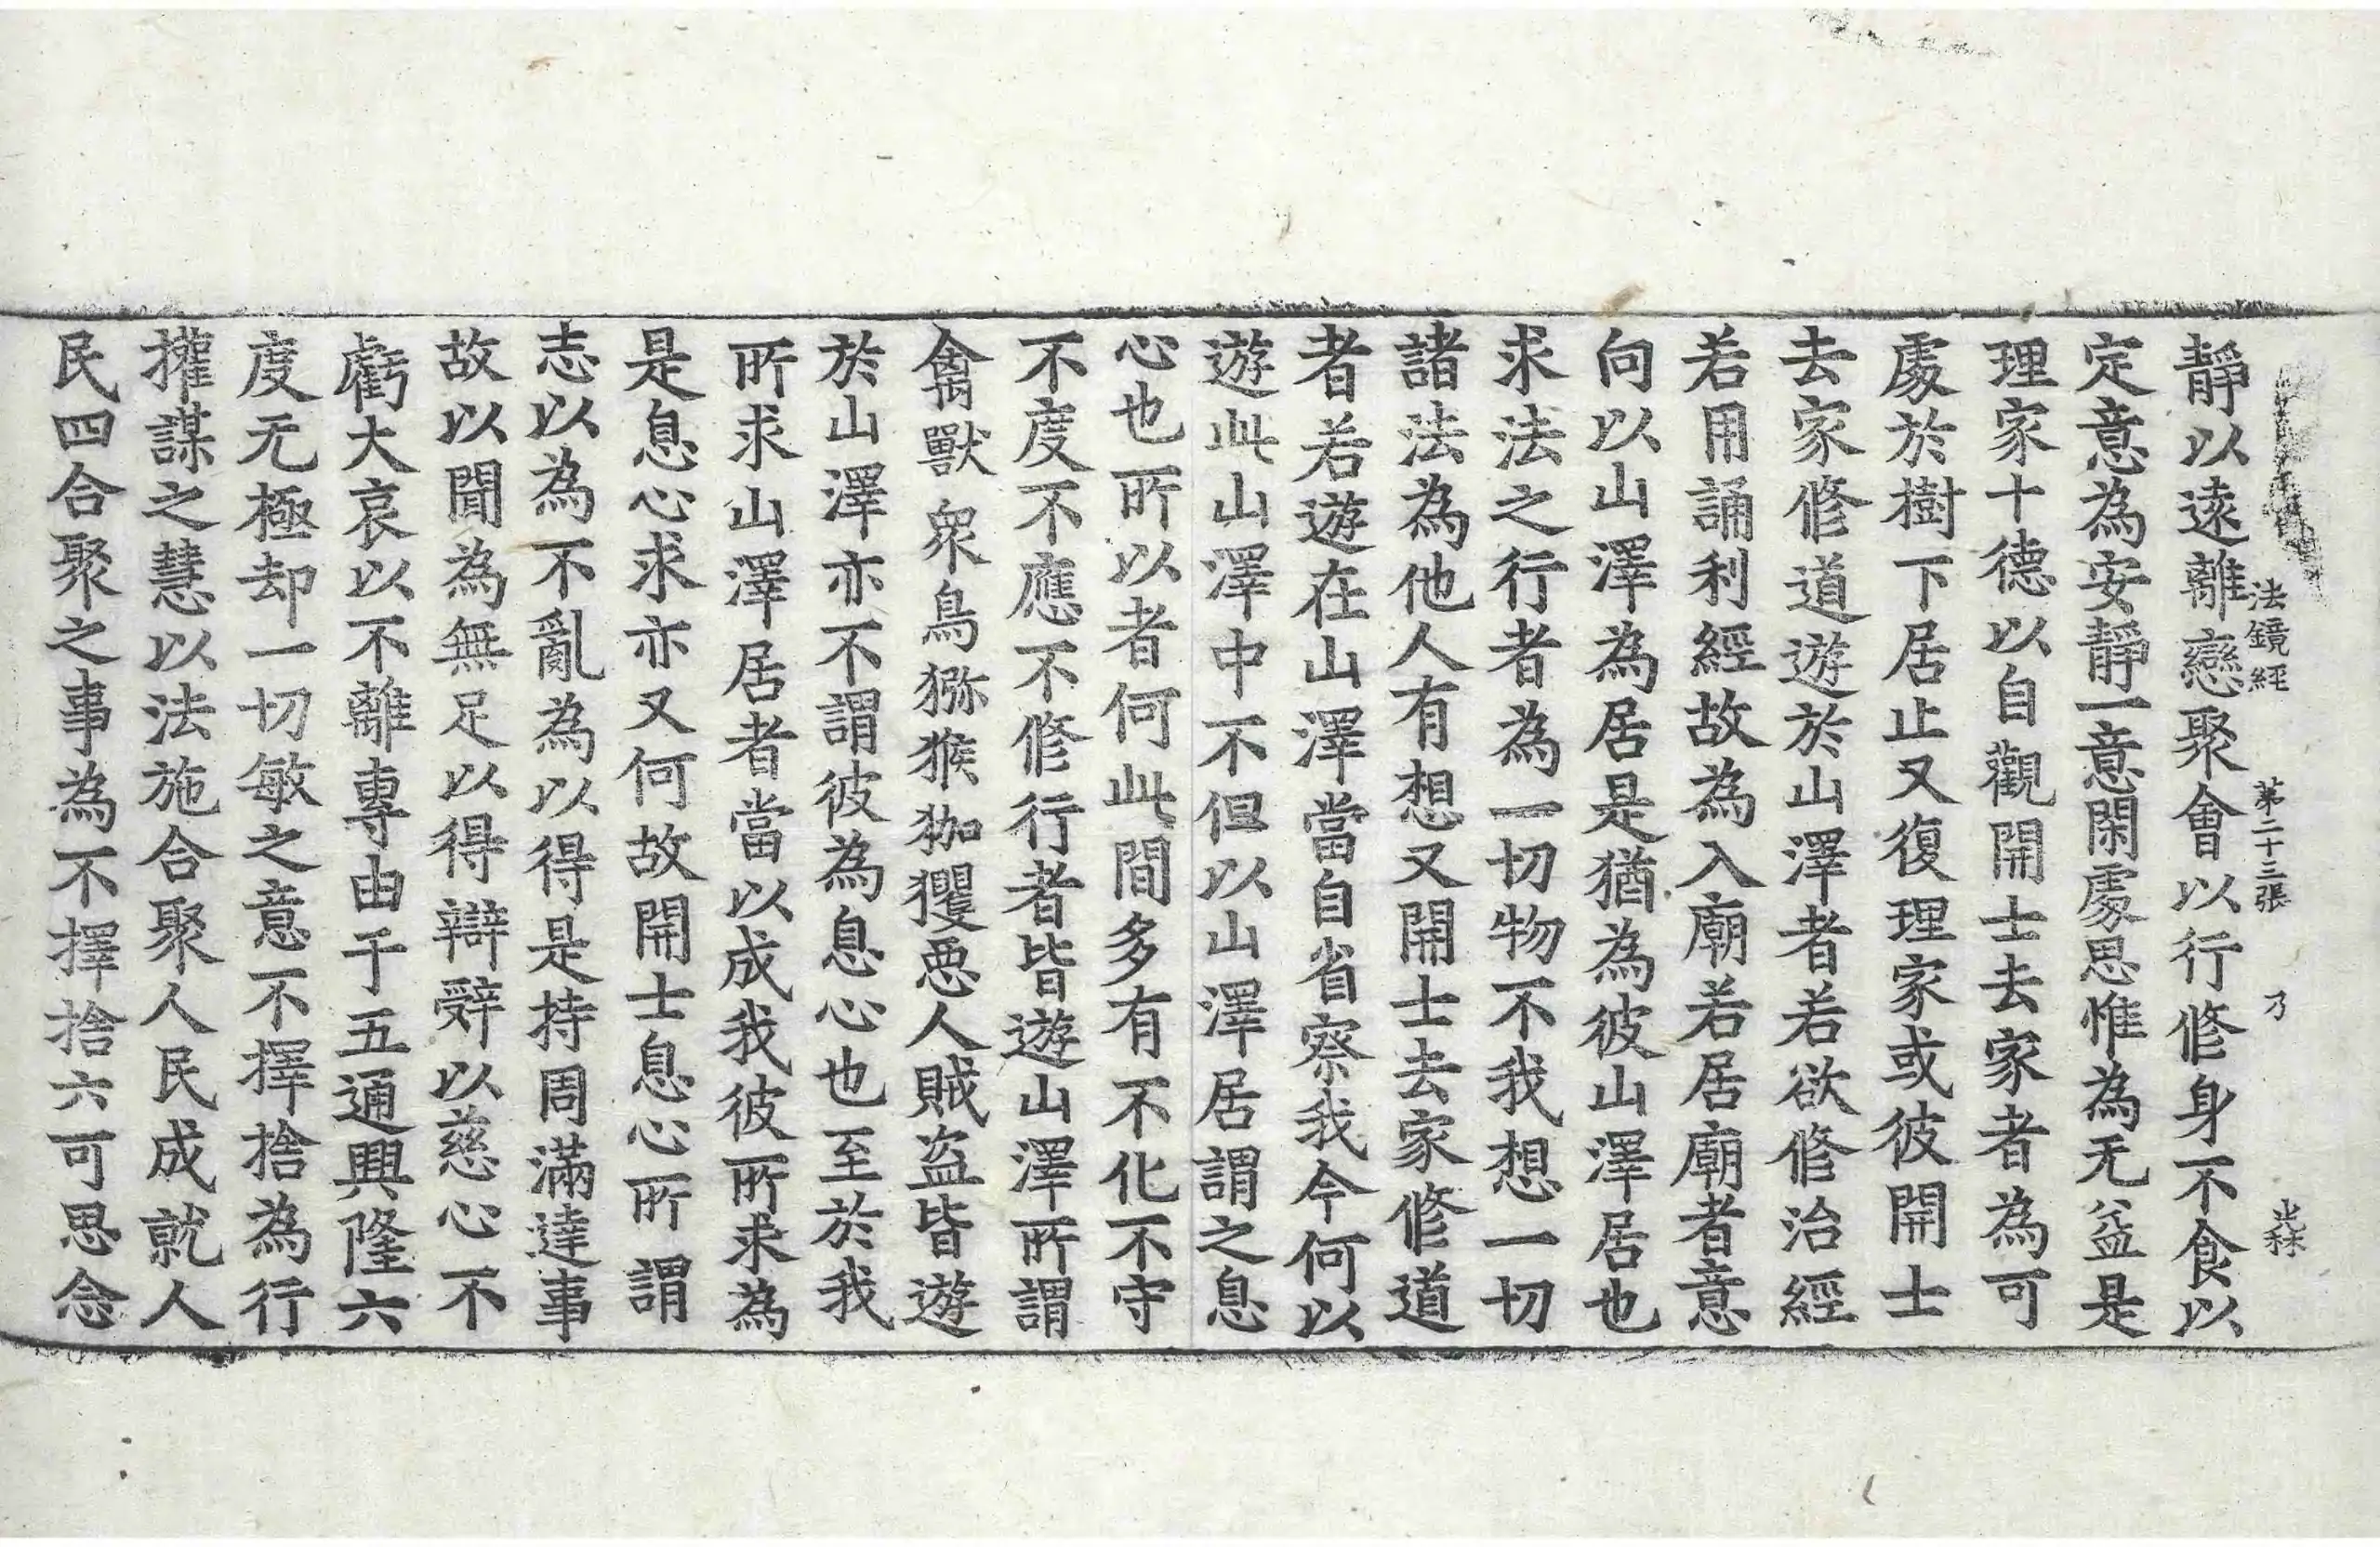 法鏡經　第二十三張　乃
靜以遠離戀聚會以行修身不食以
定意為安靜一意閑處思惟為无益是
理家十德以自觀開士去家者為可
處於樹下居止又復理家或彼開士
去家修道遊於山澤者若欲修治經
若用誦利經故為入廟若居廟者意
向以山澤為居是猶為彼山澤居也
求法之行者為一切物不我想一切
諸法為他人有想又開士去家修道
者若遊在山澤當自省察我今何以
遊此山澤中不但以山澤居謂之息
心也所以者何此間多有不化不守
不度不應不修行者皆遊山澤所謂
禽獸衆鳥獼猴𤝒玃惡人賊盜皆遊
於山澤亦不謂彼為息心也至於我
所求山澤居者當以成我彼所求為
是息心求亦又何故開士息心所謂
志以為不亂為以得是持周滿達事
故以聞為無足以得辯辭以慈心不
虧大哀以不離專由于五通興隆六
度无極却一切敏之意不擇捨為行
攉謀之慧以法施合聚人民成就人
民四合聚之事為不擇捨六可思念